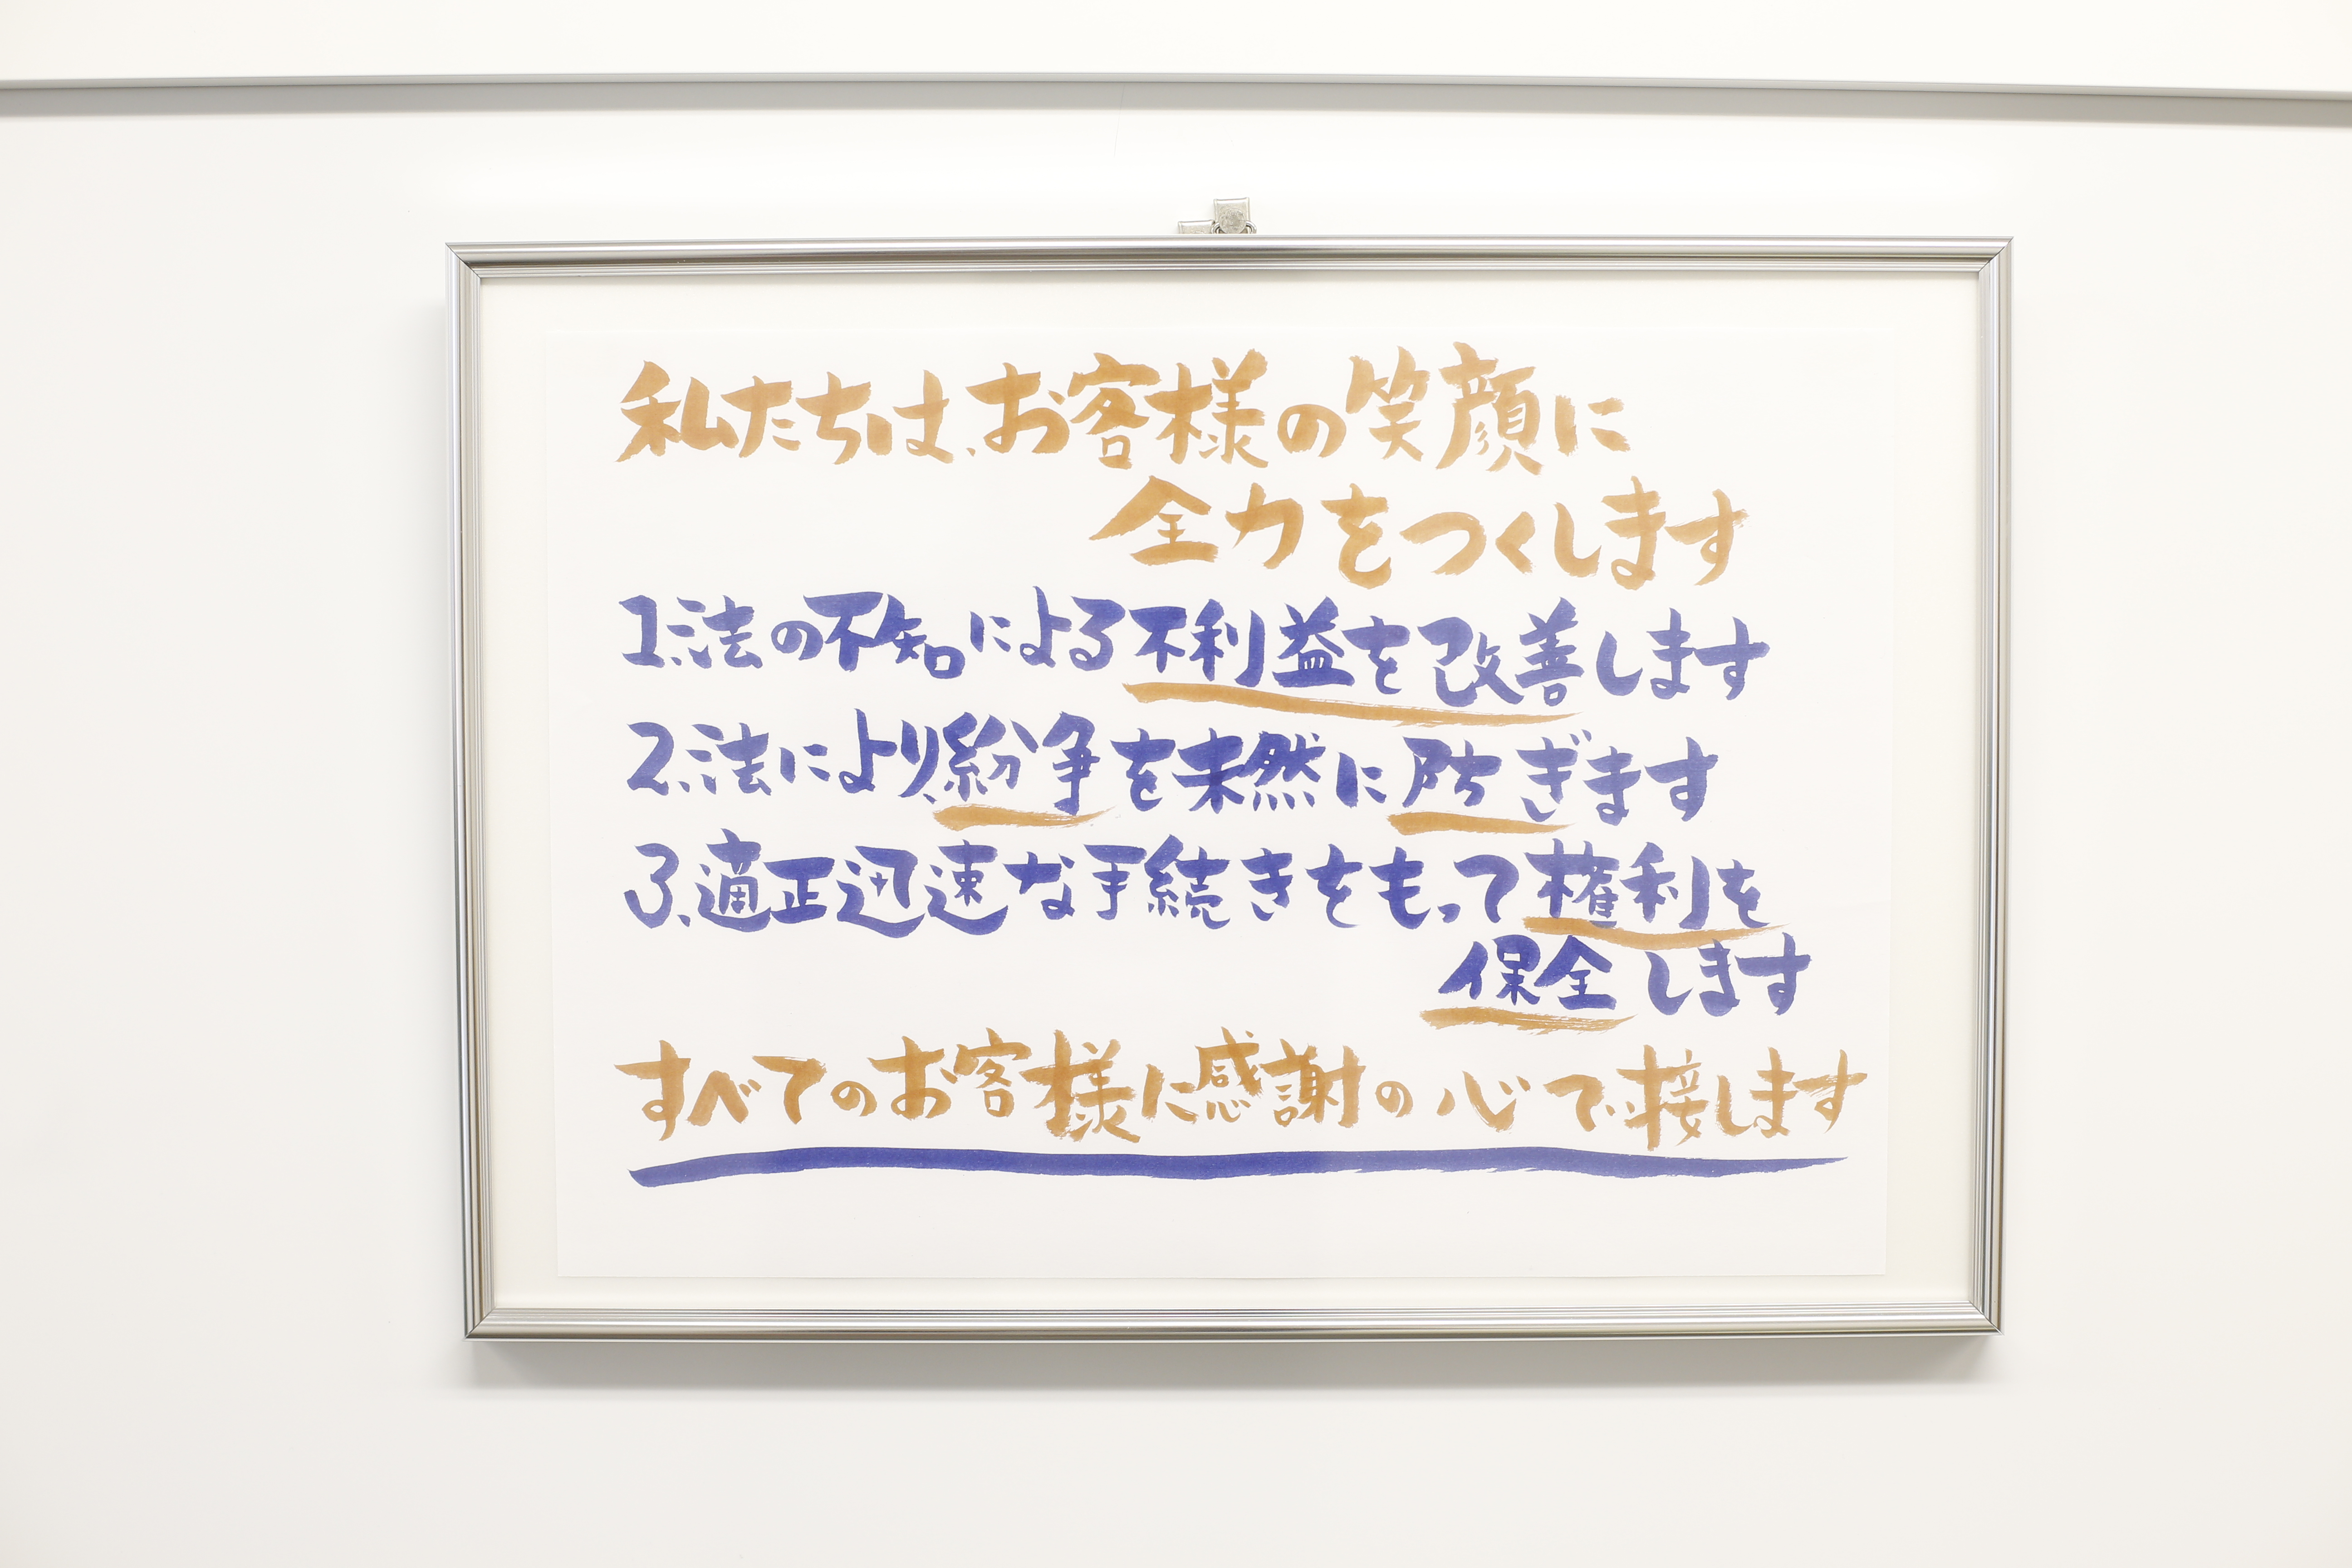 私たちは、お客様の笑顔に
全力をつくします
1.法の不知による不利益を改善します
2.法により、紛争を未然に防ぎます
3.適正迅速な手続きをもって権利を
保全します
すべてのお客様に感謝の心で接します